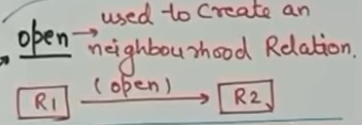 open → used to Create an
neighbourhood Relation.
(open)
R1 → R2